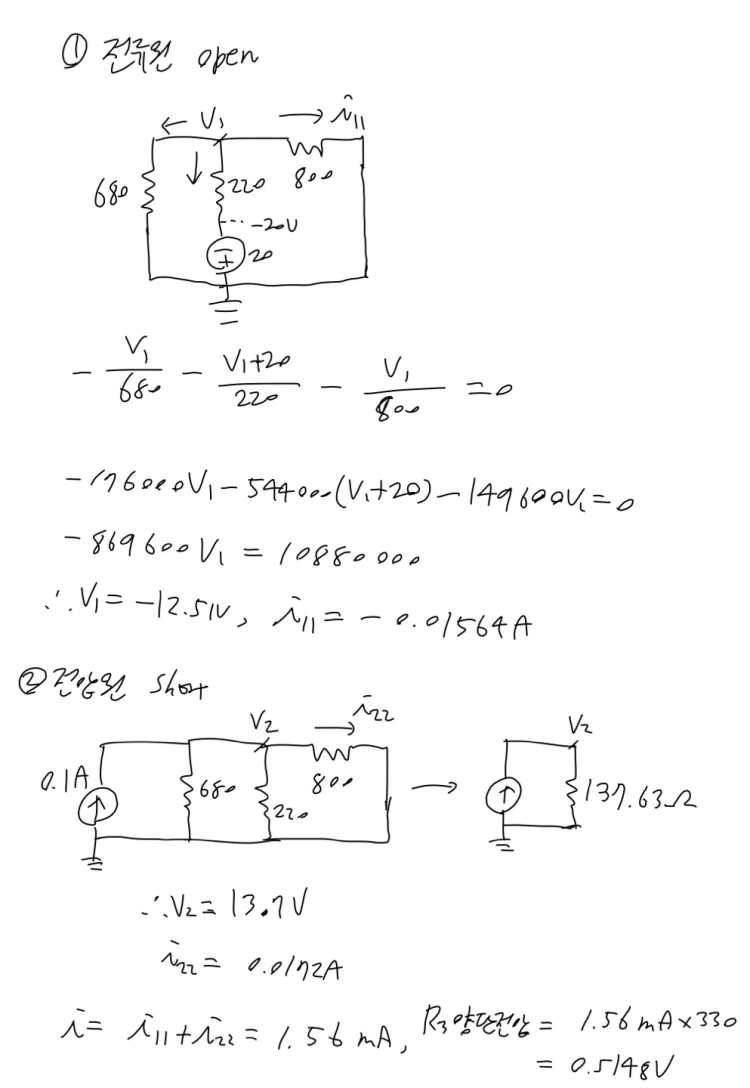 ① 전류원 open
← V₁ → i₁₁
680 ↓ 220 800
-20V
20
- V₁/680 - (V₁+20)/220 - V₁/800 = 0
-176000V₁ - 544000(V₁+20) - 149600V₁ = 0
-869600V₁ = 10880000
∴ V₁ = -12.51V, i₁₁ = -0.01564A
② 전압원 short
V₂ → i₂₂ V₂
0.1A 680 220 800 → 137.63Ω
∴ V₂ = 13.7V
i₂₂ = 0.0172A
i = i₁₁ + i₂₂ = 1.56 mA, R₃양단전압 = 1.56 mA×330
= 0.5148V